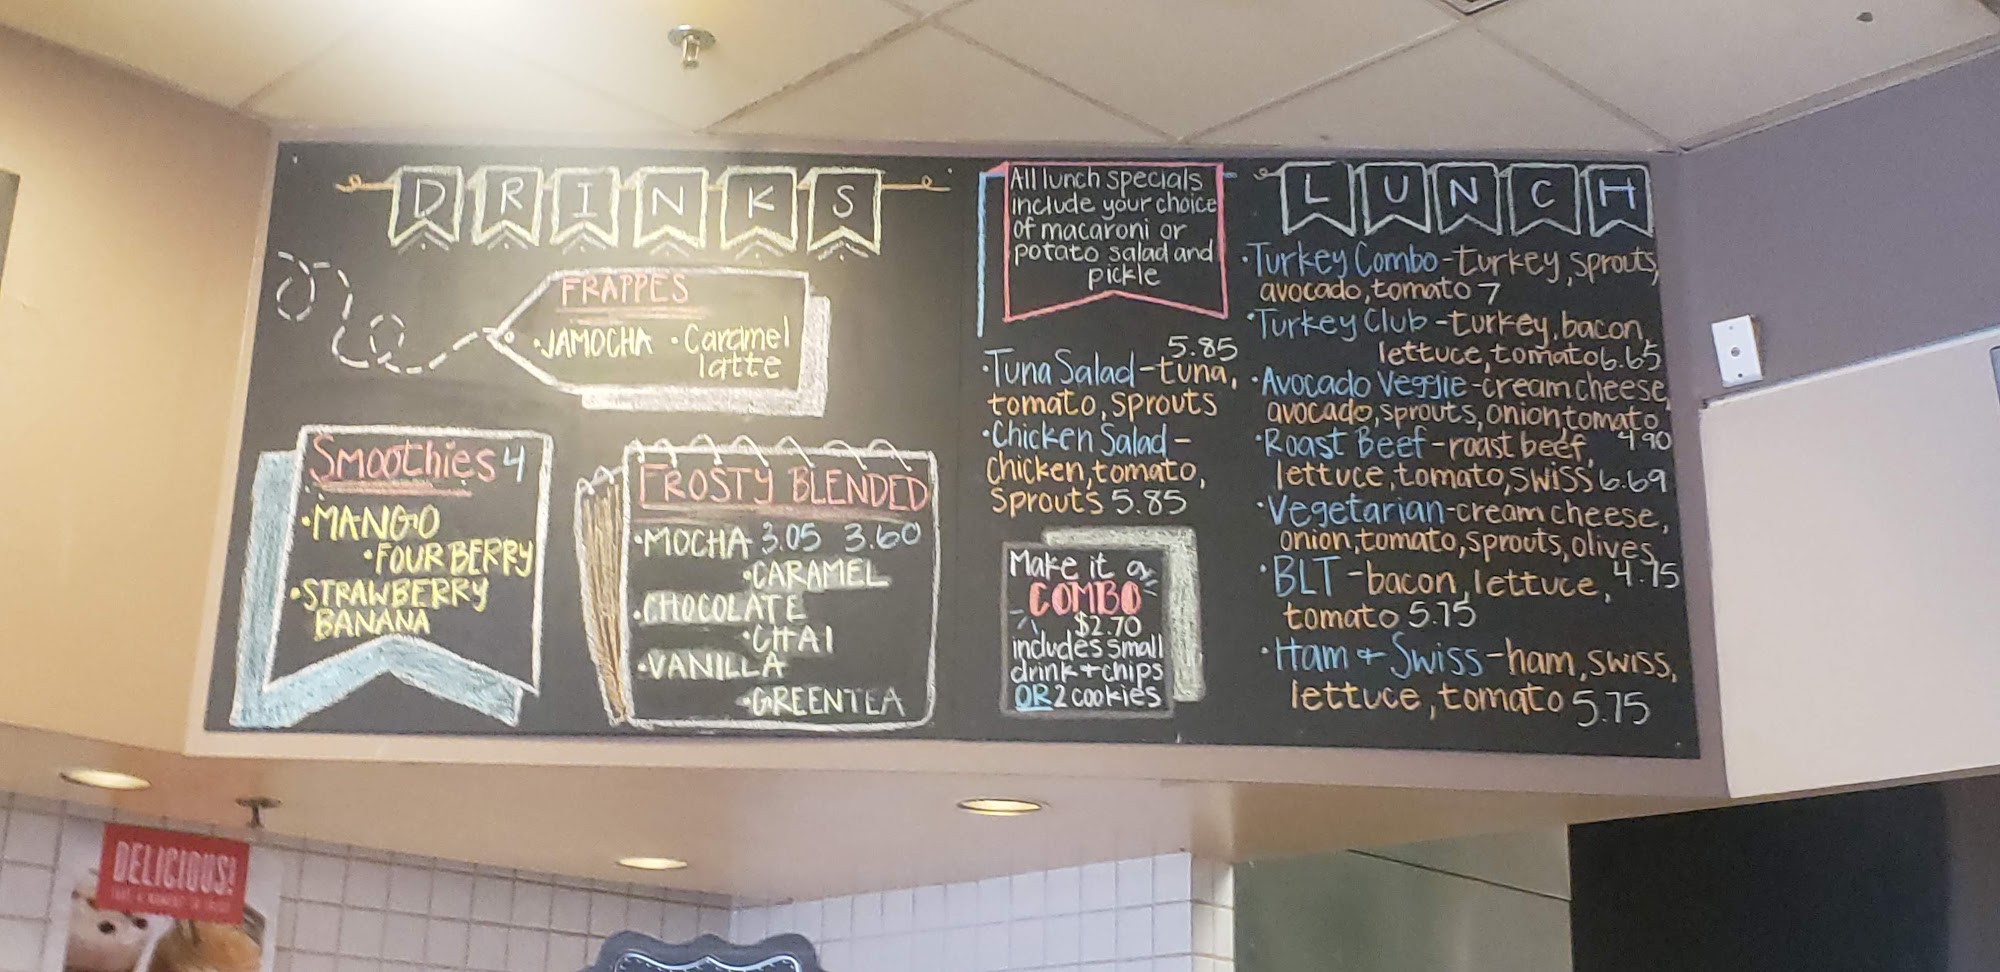 DRINKS
FRAPPES
·JAMOCHA ·Caramel
latte
Smoothies 4
·MANGO
·FOUR BERRY
·STRAWBERRY
BANANA
FROSTY BLENDED
·MOCHA 3.05 3.60
·CARAMEL
·CHOCOLATE
·CHAI
·VANILLA
·GREENTEA
All lunch specials
include your choice
of macaroni or
potato salad and
pickle
5.85
·Tuna Salad-tuna,
tomato, sprouts
·Chicken Salad-
chicken, tomato,
sprouts 5.85
Make it a
COMBO
$2.70
includes small
drink + chips
OR 2 cookies
LUNCH
·Turkey Combo-turkey, sprouts,
avocado, tomato 7
·Turkey Club-turkey, bacon,
lettuce, tomato 6.65
·Avocado Veggie-cream cheese,
avocado, sprouts, onion, tomato
·Roast Beef-roast beef, 4.90
lettuce, tomato, swiss 6.69
·Vegetarian-cream cheese,
onion, tomato, sprouts, olives,
·BLT-bacon, lettuce, 4.75
tomato 5.75
·Ham + Swiss-ham, swiss,
lettuce, tomato 5.75
DELICIOUS!